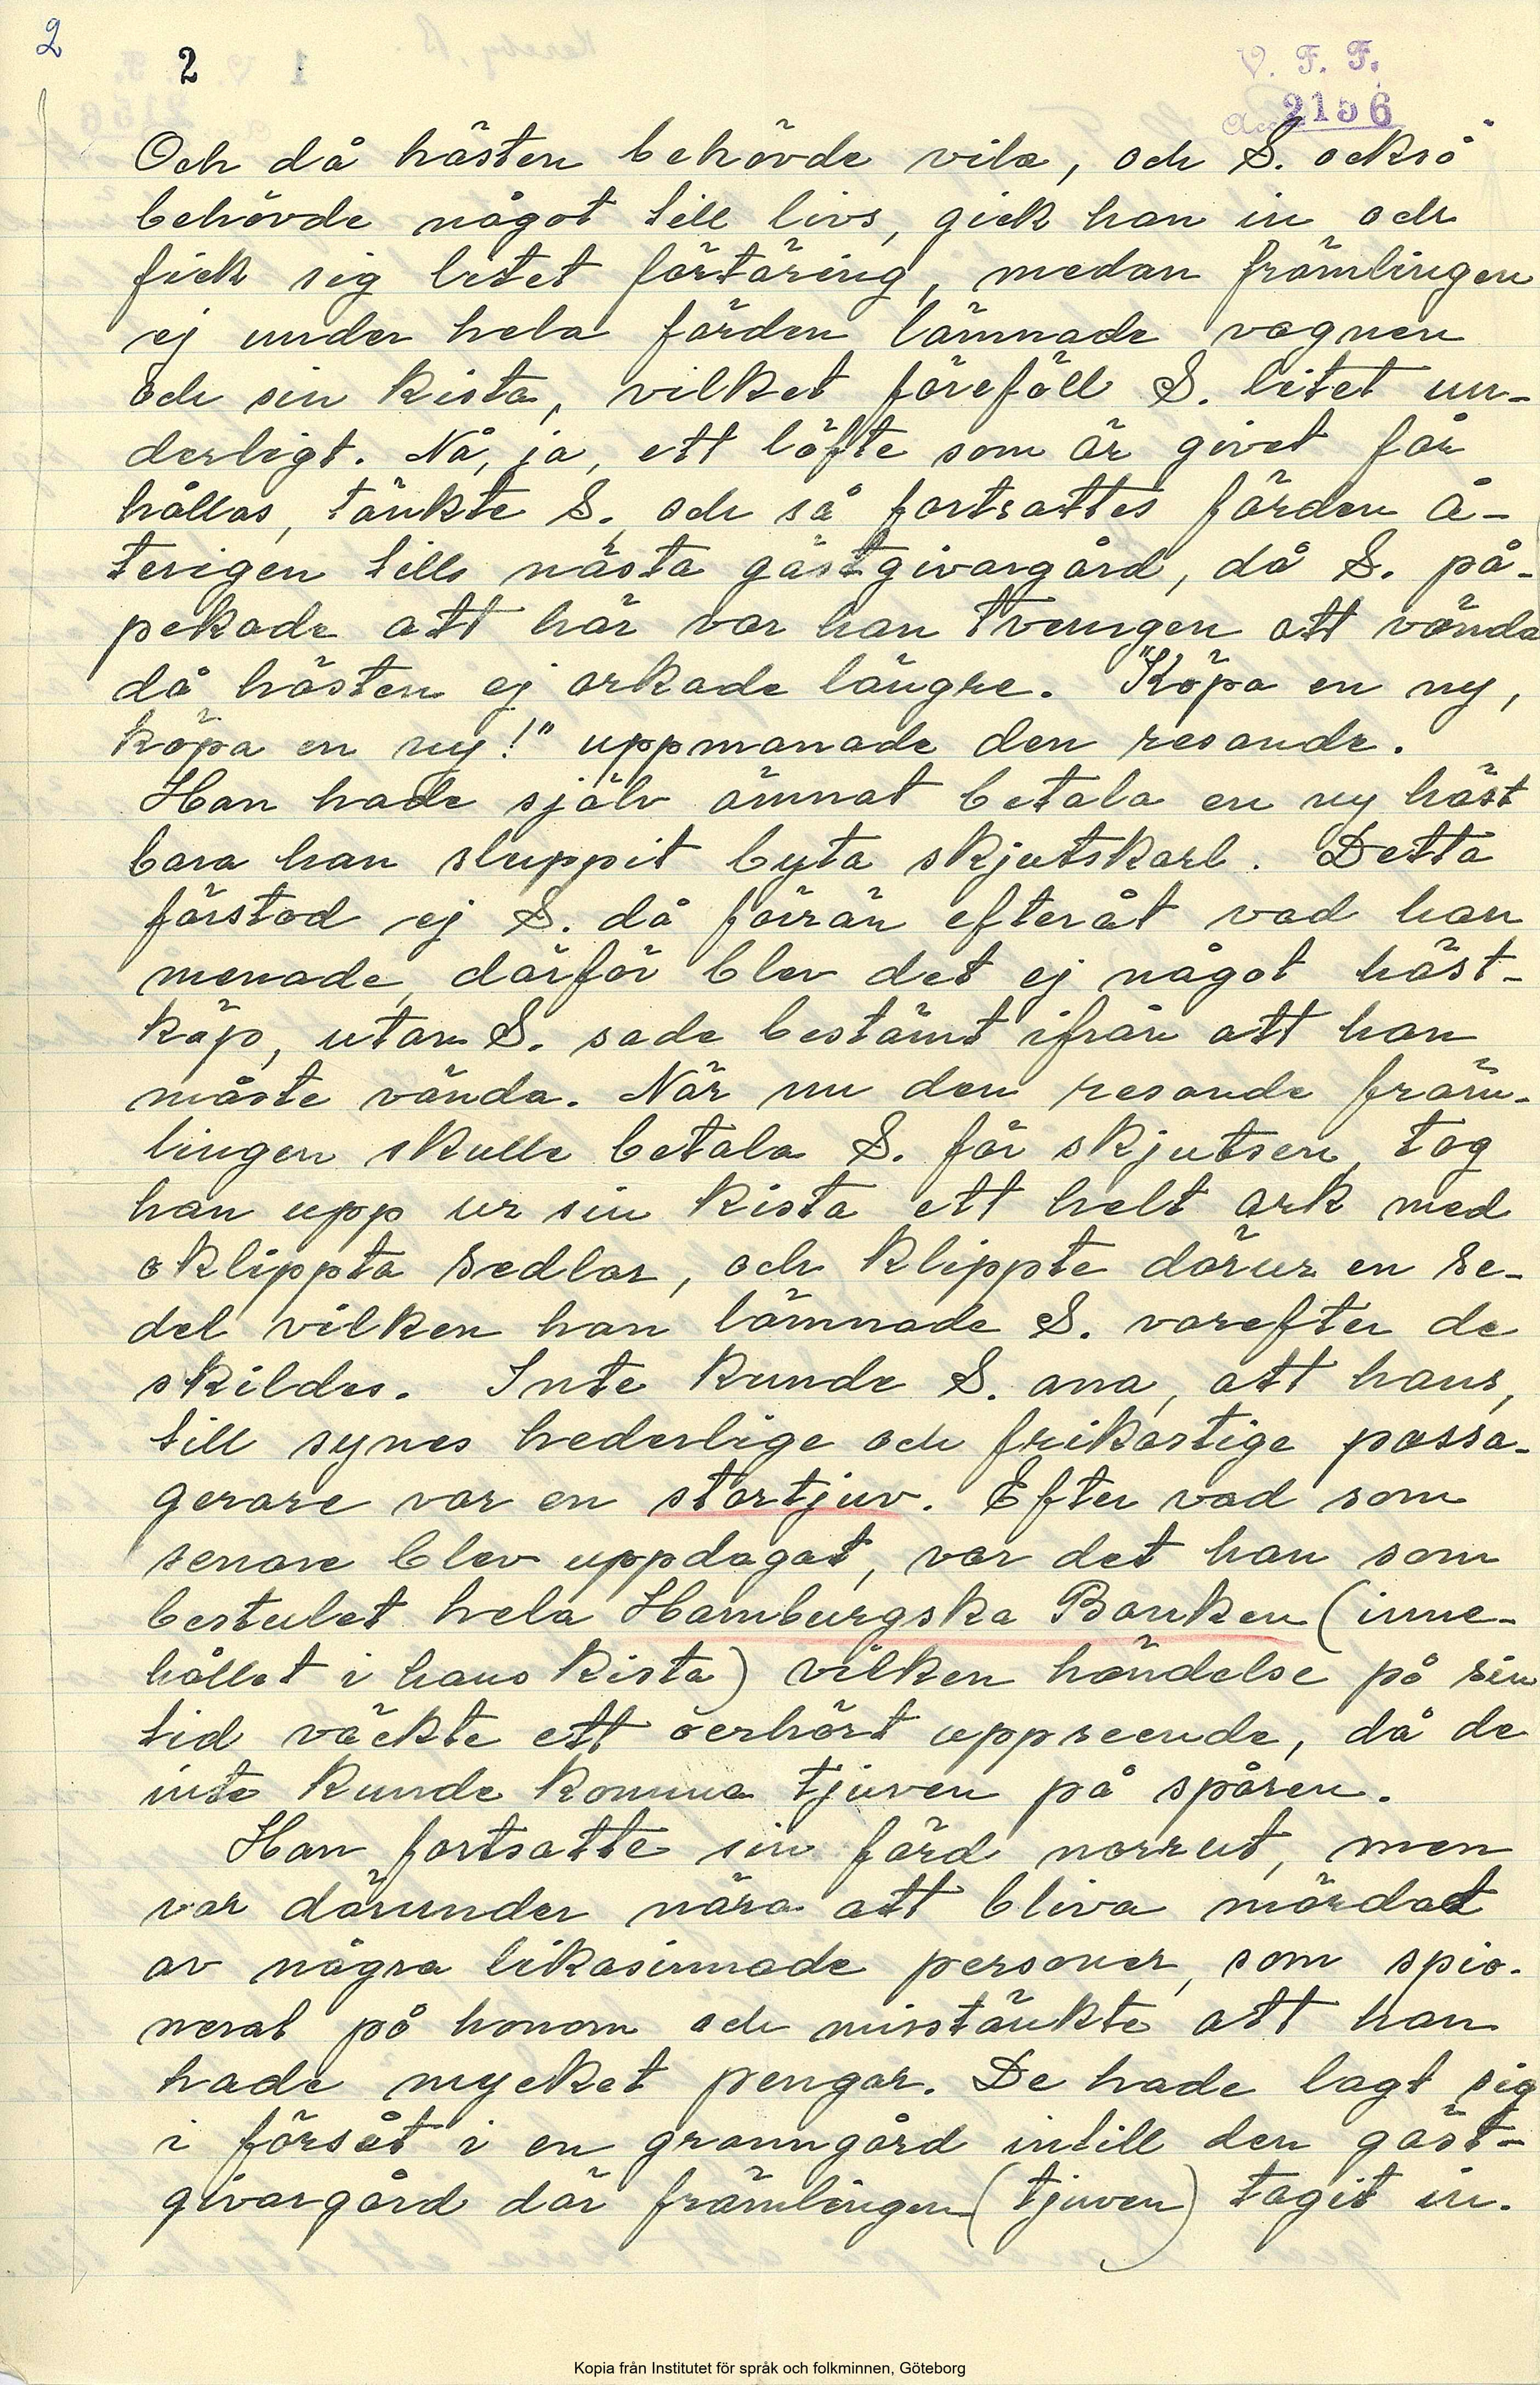 2
2
V. F. F.
Acc. 2156
Och då hästen behövde vila, och S. också
behövde något till livs, gick han in och
fick sig litet förtäring, medan främlingen
ej under hela färden lämnade vagnen
och sin kista, vilket föreföll S. litet un-
derligt. Nå, ja, ett löfte som är givet får
hållas, tänkte S. och så fortsattes färden å-
terigen tills nästa gästgivargård, då S. på-
pekade att här var han tvungen att vända
då hästen ej orkade längre. "Köpa en ny,
köpa en ny!" uppmanade den resande.
Han hade själv ämnat betala en ny häst
bara han sluppit byta skjutskarl. Detta
förstod ej S. då förrän efteråt vad han
menade, därför blev det ej något häst-
köp, utan S. sade bestämt ifrån att han
måste vända. När nu den resande främ-
lingen skulle betala S. för skjutsen, tog
han upp ur sin kista ett helt ark med
oklippta sedlar, och klippte därur en se-
del vilken han lämnade S. varefter de
skildes. Inte kunde S. ana, att hans,
till synes hederlige och frikostige passa-
gerare var en stortjuv. Efter vad som
senare blev uppdagat, var det han som
bestulet hela Hamburgska Banken (inne-
hållet i hans kista) vilken händelse på sin
tid väckte ett oerhört uppseende, då de
inte kunde komma tjuven på spåren.
Han fortsatte sin färd norrut, men
var därunder nära att bliva mördad
av några likasinnade personer, som spio-
nerat på honom och misstänkte att han
hade mycket pengar. De hade lagt sig
i försåt i en granngård intill den gäst-
givargård där främlingen (tjuven) tagit in.
Kopia från Institutet för språk och folkminnen, Göteborg